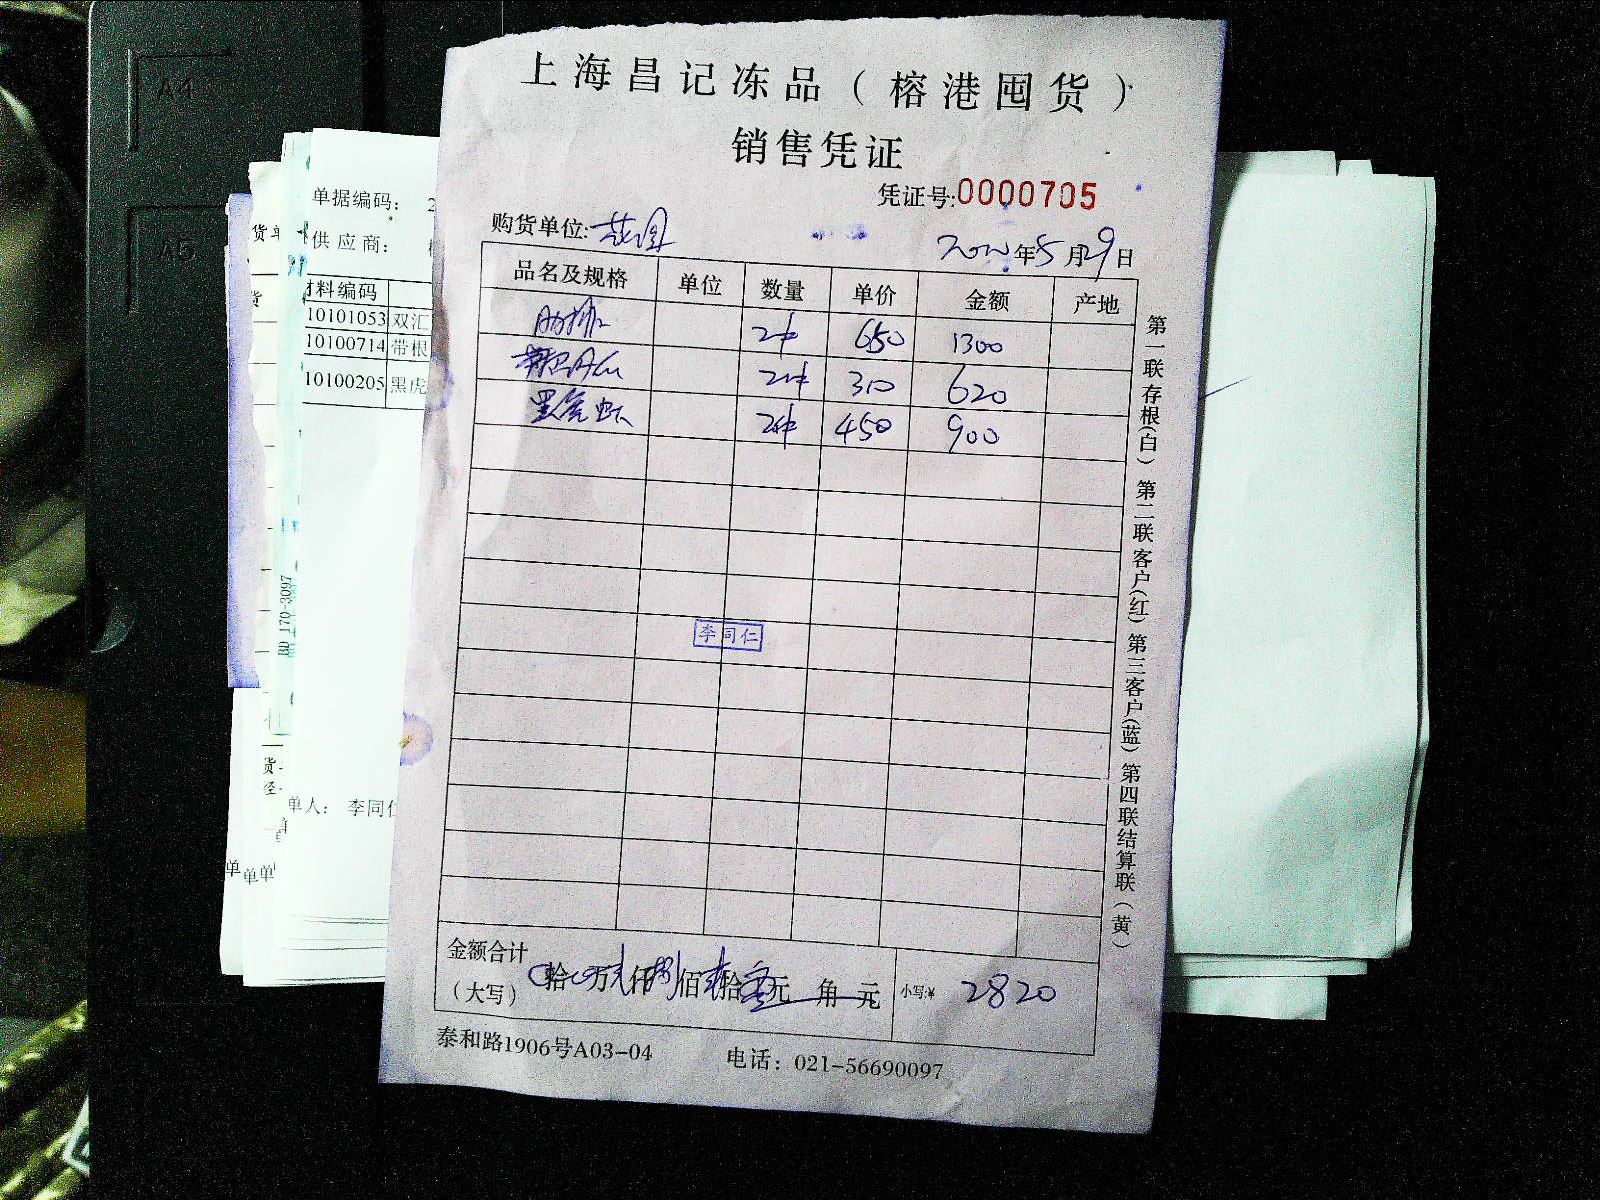 上海昌记冻品（榕港囤货）
销售凭证
凭证号:0000705
购货单位:
年5月29日
品名及规格 单位 数量 单价 金额 产地
肋排 2件 650 1300
2件 310 620
黑虎虾 2件 450 900
李同仁
金额合计
（大写） 拾 万 仟 捌佰 贰拾 元 角 元 小写:¥ 2820
泰和路1906号A03-04 电话：021-56690097
第一联存根(白) 第二联客户(红) 第三客户(蓝) 第四联结算联(黄)
单据编码： 2
供应商：
材料编码
10101053 双汇
10100714 带根
10100205 黑虎
单人： 李同仁
货单
货
170-3097
A4
A5